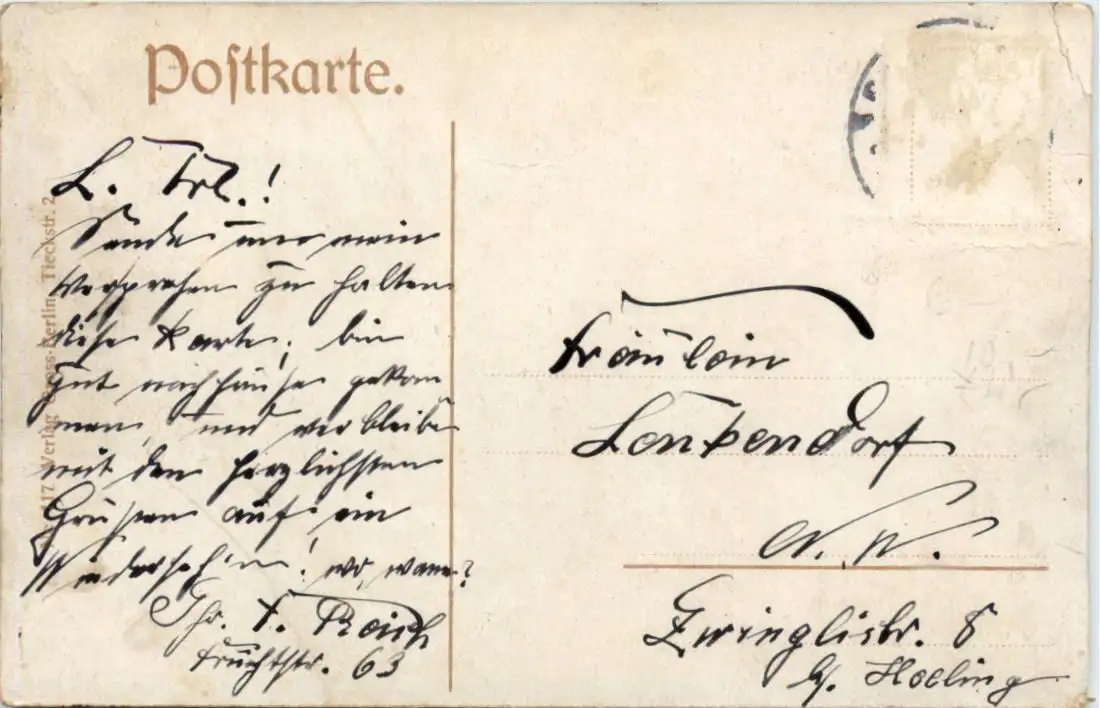 Postkarte.
L. Frl.!
Sende um mein
Versprechen zu halten
diese Karte; bin
gut nachhause gekom
men, und verbleibe
mit den herzlichsten
Grüssen auf ein
Wiedersehen! wo, wann?
Ihr. F. Reich
Fruchtstr. 63
17. Verlag Gross-Berlin, Tieckstr. 2
Fräulein
Lenkendorf
N. W.
Zwinglistr. 8
b/. Hoeling